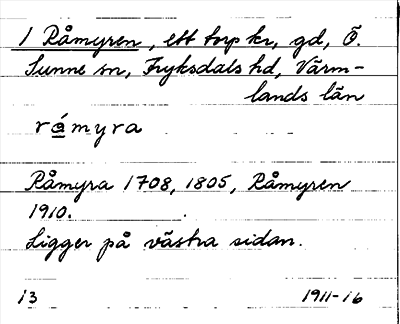 1 Råmyren, ett torp kr, gd, Ö.
Sunne sn, Fryksdals hd, Värm-
lands län
råmyra
Råmyra 1708, 1805, Råmyren
1910.
Ligger på västra sidan.
13 1911-16